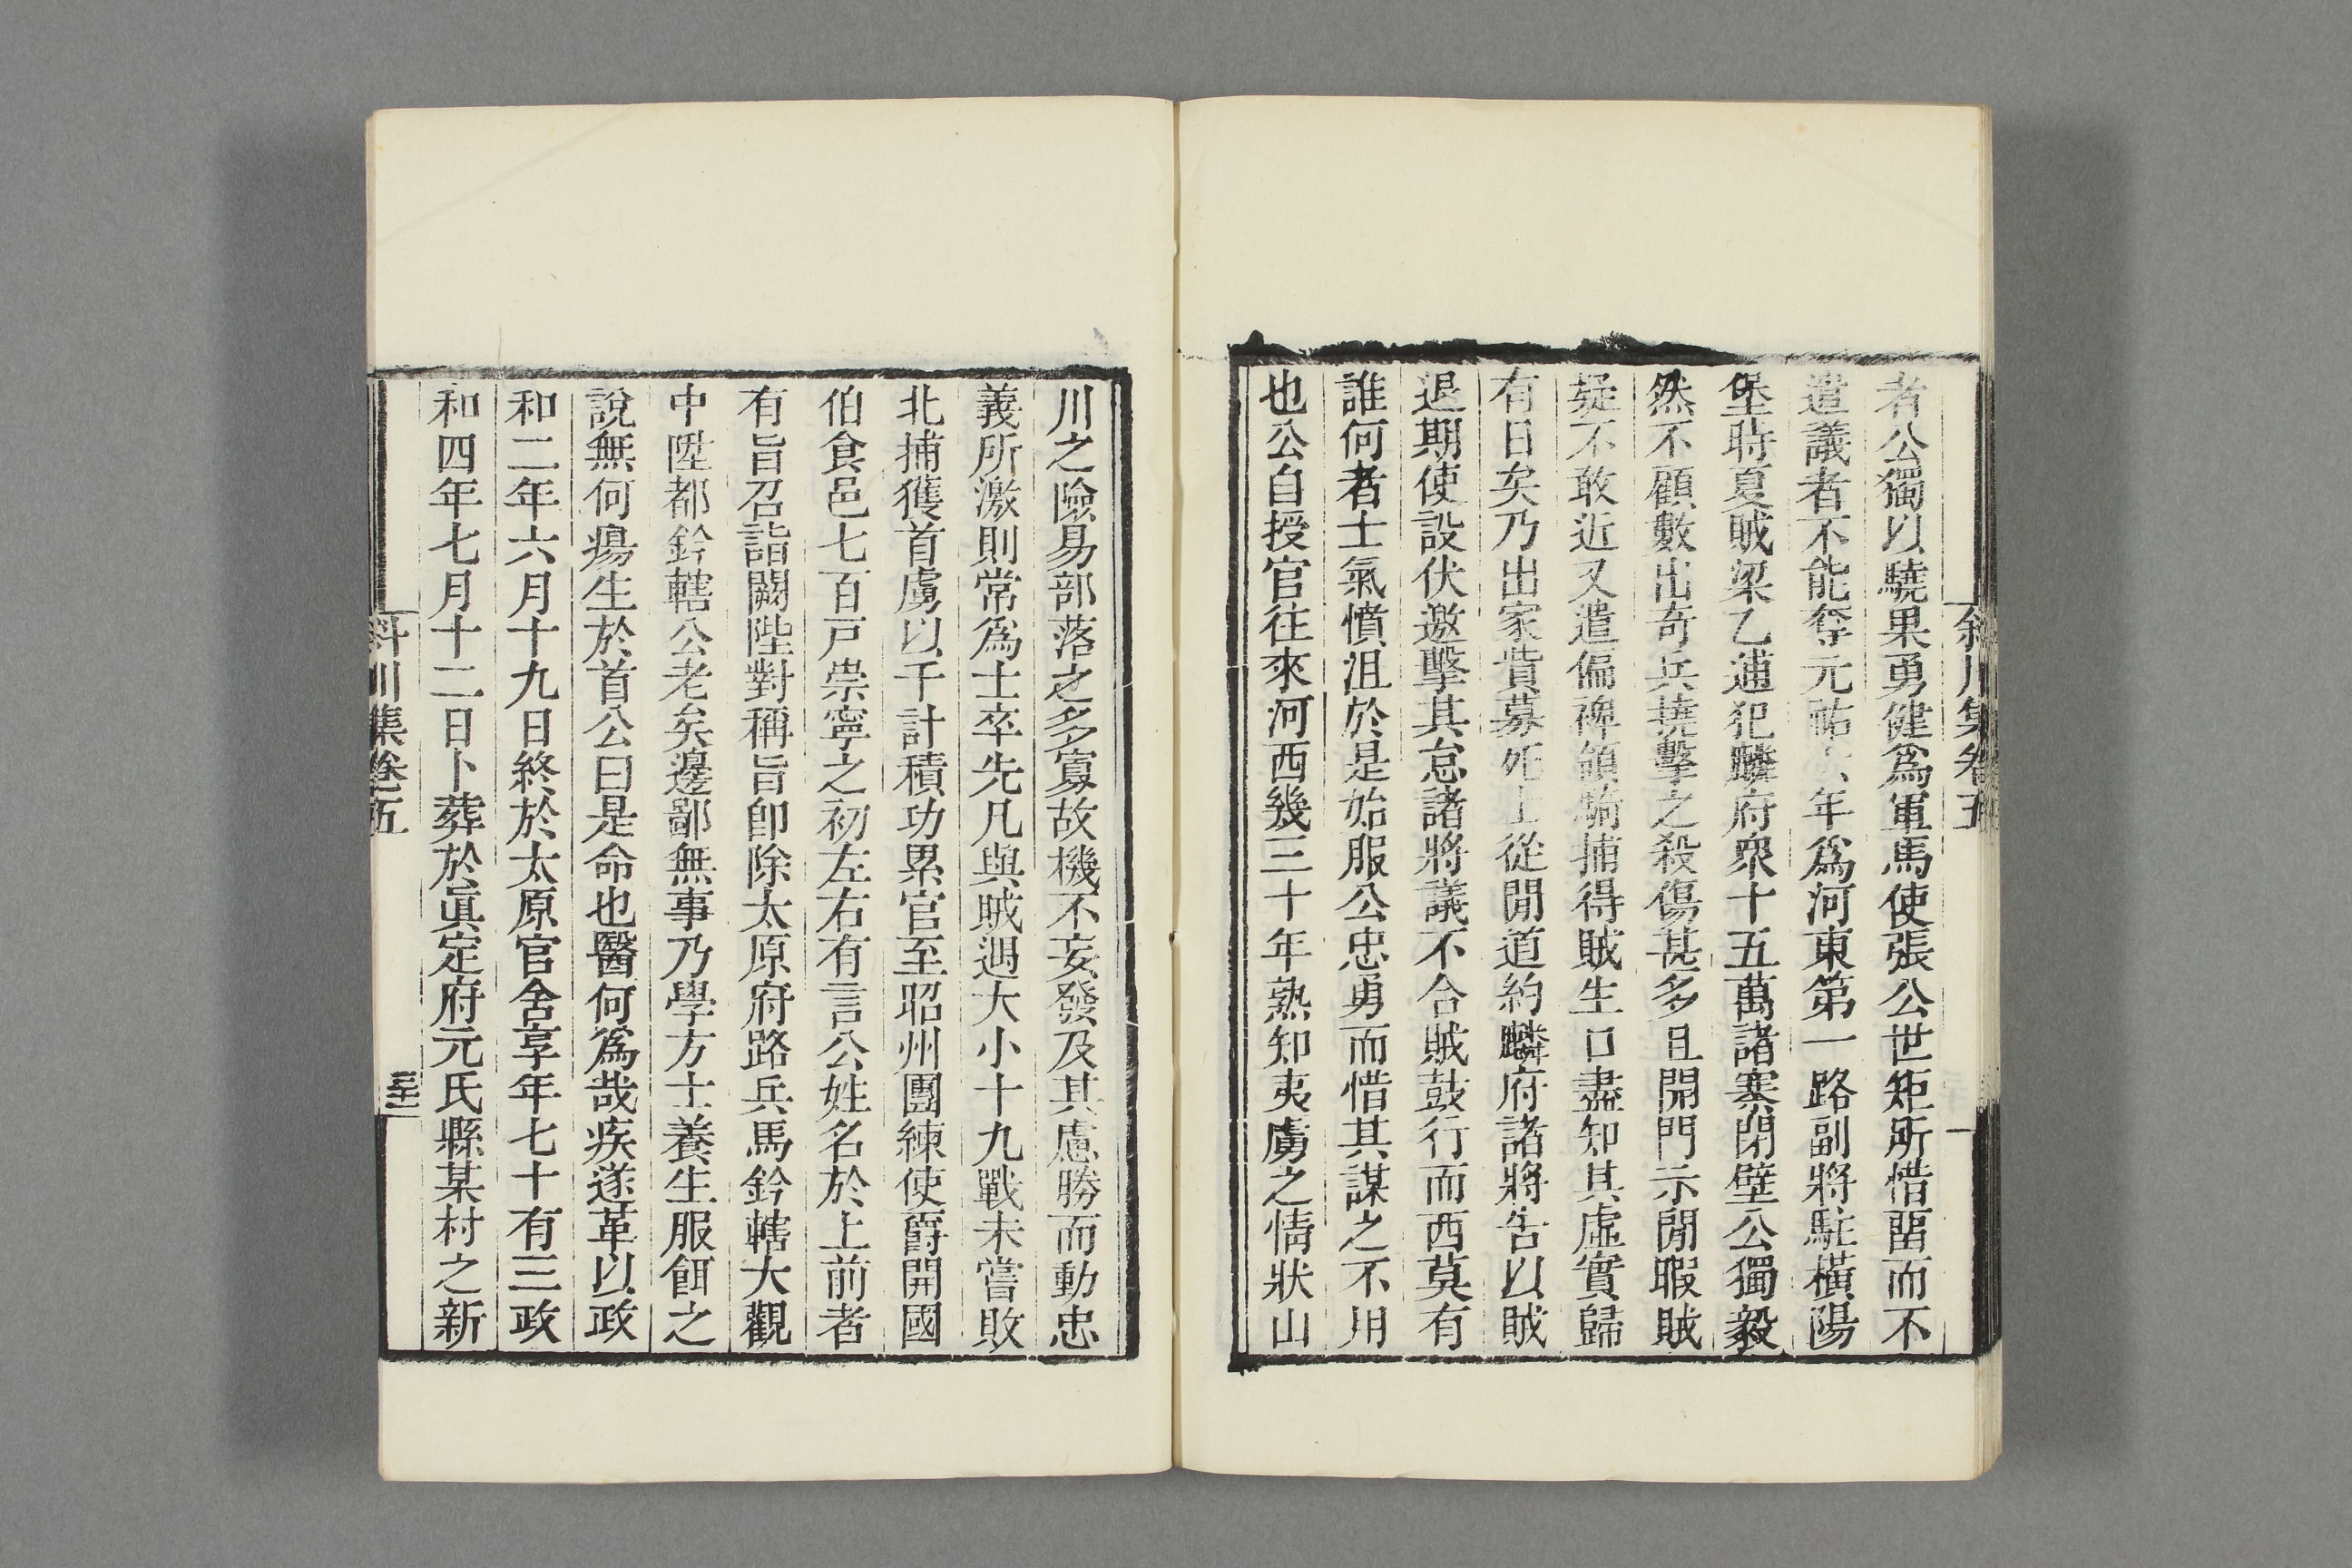 斜川集卷五
者公獨以驍果勇健爲軍馬使張公世矩所惜留而不
遣議者不能奪元祐六年爲河東第一路副將駐橫陽
堡時夏賊梁乙逋犯麟府衆十五萬諸寨閉壁公獨毅
然不顧數出奇兵撓擊之殺傷甚多且開門示閒暇賊
疑不敢近又遣偏裨領騎捕得賊生口盡知其虛實歸
有日矣乃出家貲募死士從閒道約麟府諸將告以賊
退期使設伏邀擊其怠諸將議不合賊鼓行而西莫有
誰何者士氣憤沮於是始服公忠勇而惜其謀之不用
也公自授官往來河西幾三十年熟知夷虜之情狀山
川之險易部落之多寡故機不妄發及其慮勝而動忠
義所激則常爲士卒先凡與賊遇大小十九戰未嘗敗
北捕獲首虜以千計積功累官至昭州團練使爵開國
伯食邑七百戸崇寧之初左右有言公姓名於上前者
有旨召詣闕陛對稱旨卽除太原府路兵馬鈐轄大觀
中陞都鈐轄公老矣邊鄙無事乃學方士養生服餌之
說無何瘍生於首公曰是命也醫何爲哉疾遂革以政
和二年六月十九日終於太原官舍享年七十有三政
和四年七月十二日卜葬於眞定府元氏縣某村之新
斜川集卷五